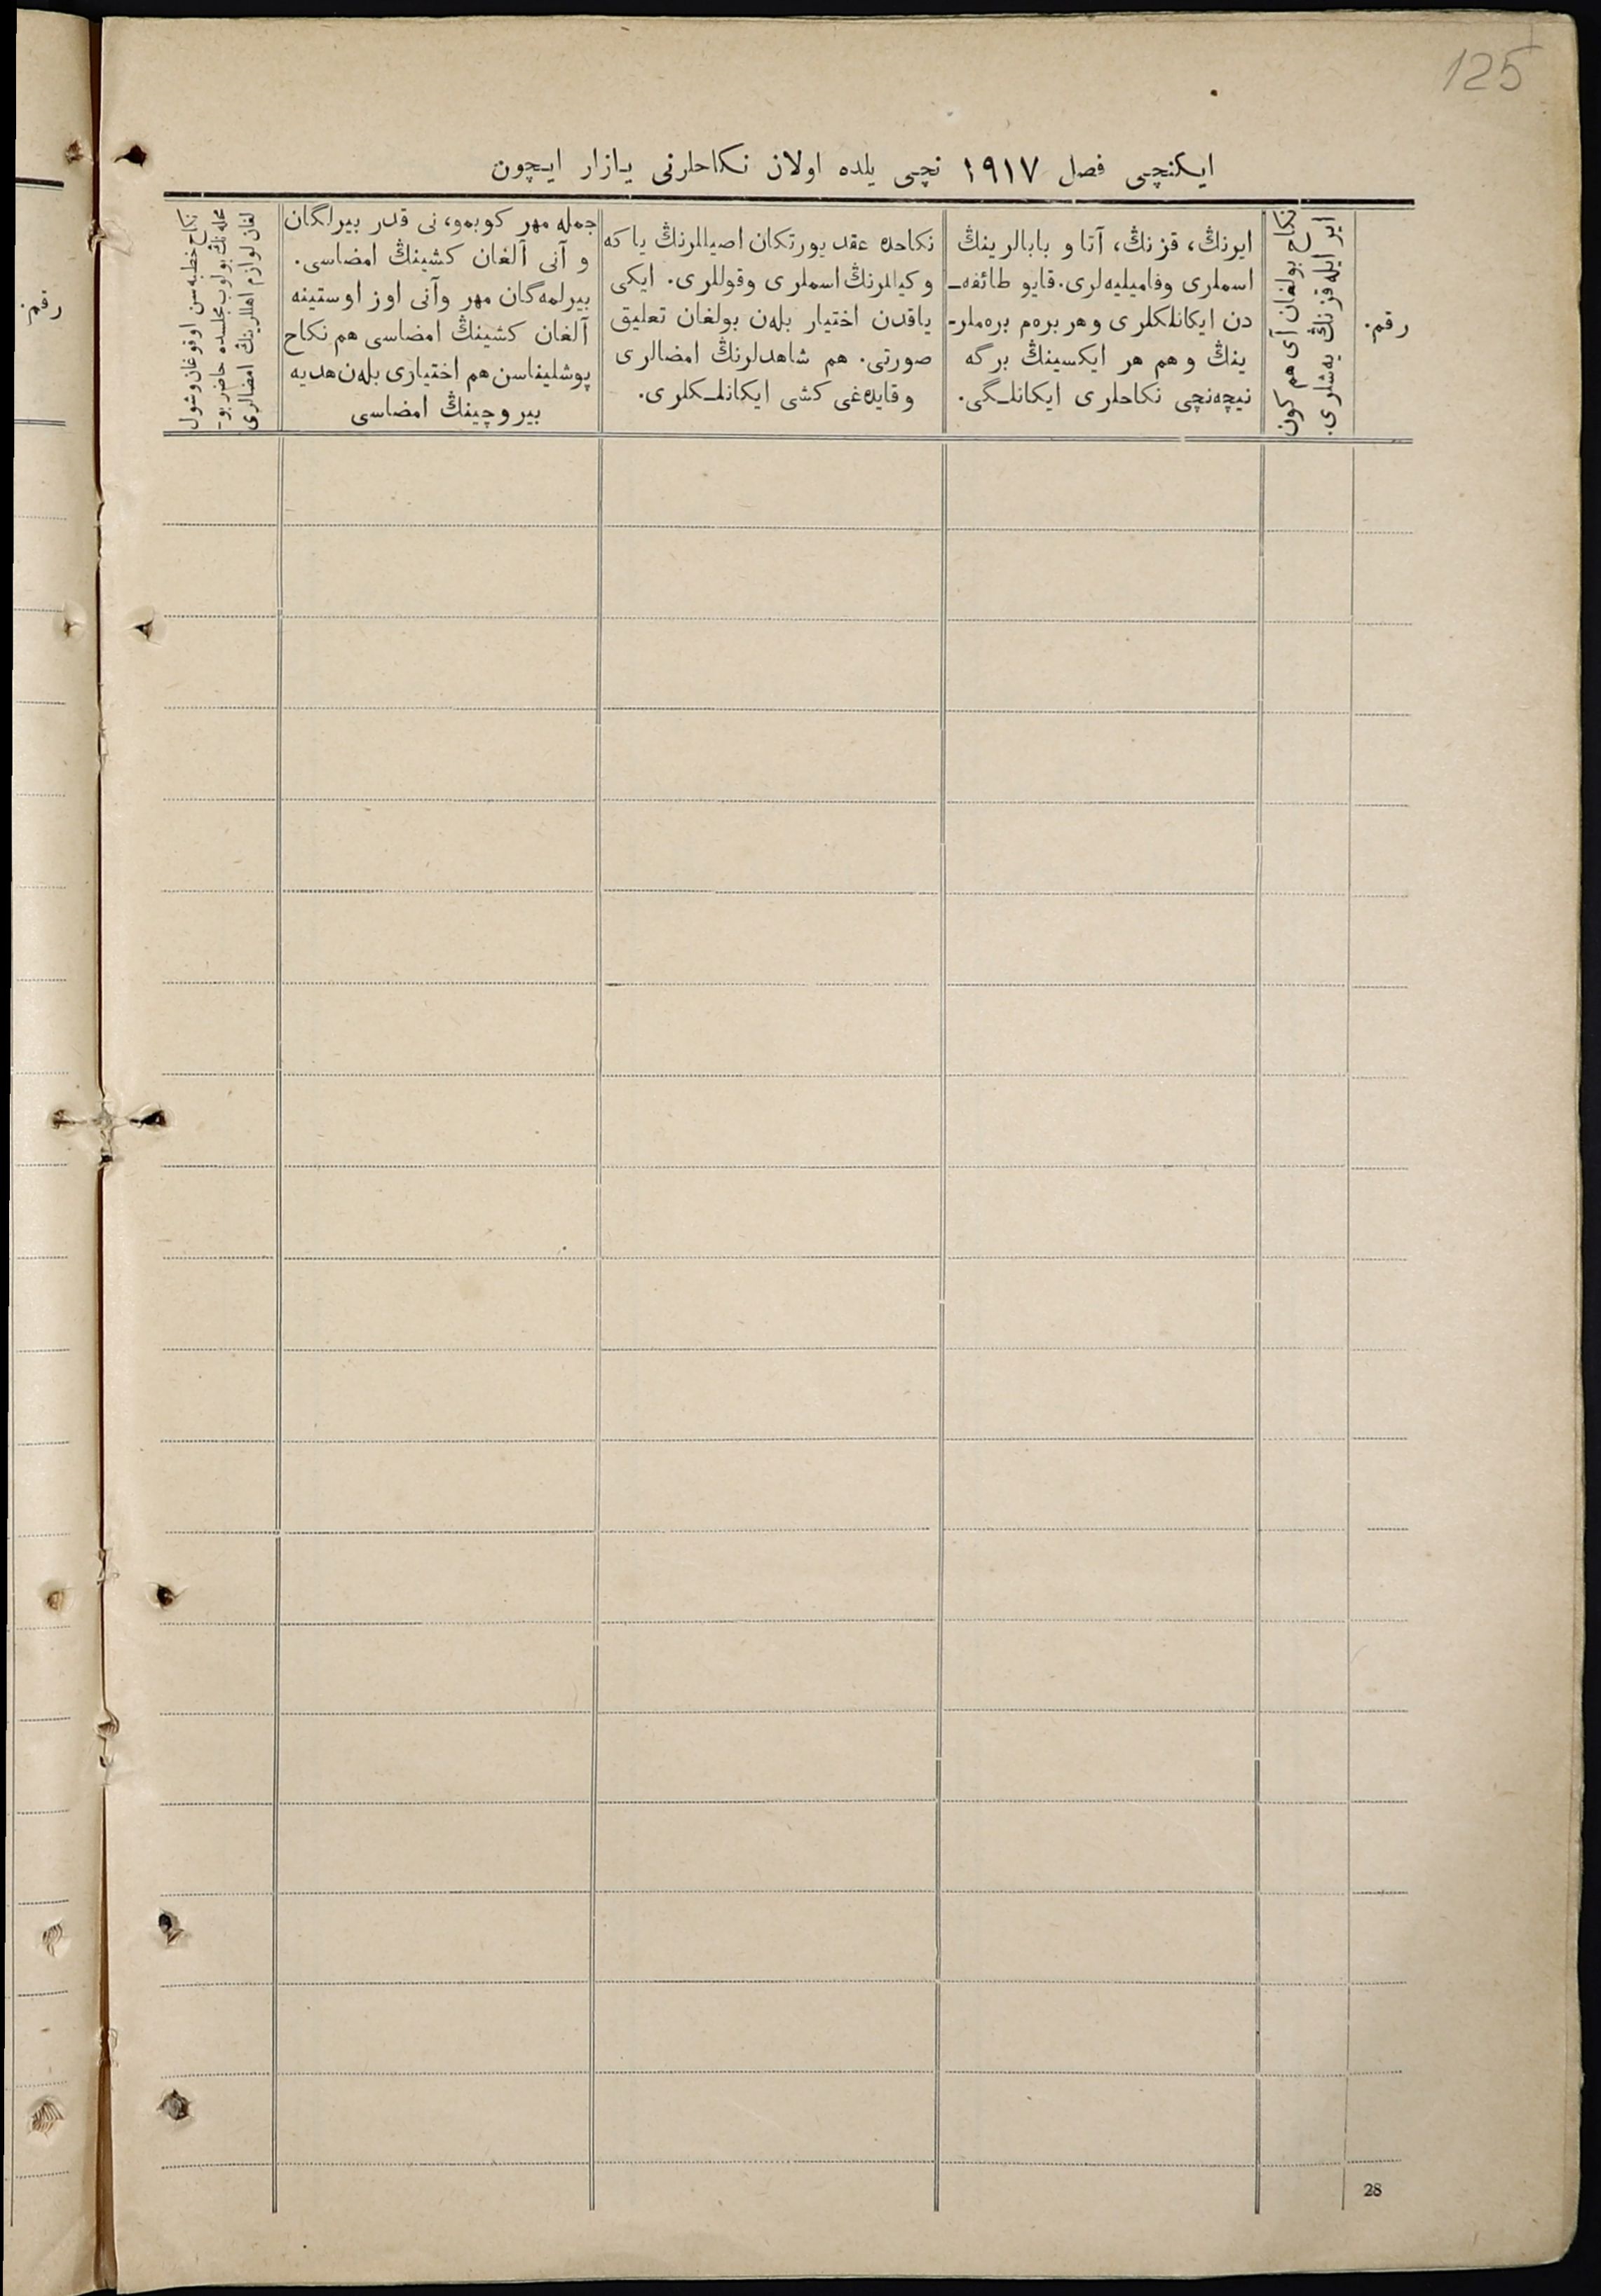 125
ایکنچی فصل ۱۹۱۷ نچی یلده اولان نکاحلرنی یازار ایچون
رقم.
رقم.
نکاح بولغان آی هم کون
ایر ایله قزنڭ یه‌شلری.
ایرنڭ، قزنڭ، آتا و بابالرینڭ
اسملری وفامیلیه‌لری. قایو طائفه‌ـ
دن ایکانلکلری و هر برەم برەملرـ
ینڭ و هم هر ایکسینڭ برگه
نیچه‌نچی نکاحلری ایکانلـگی.
نکاحده عقد یورتکان اصیللرنڭ یا که
و کیللرنڭ اسملری وقوللری. ایکی
یاقدن اختیار بله‌ن بولغان تعلیق
صورتی. هم شاهدلرنڭ امضالری
وقایده‌غی کشی ایکانلـکلری.
جمله مهر کوبمو، نی قدر بیرلگان
و آنی آلغان کشینڭ امضاسی.
بیرلمه‌گان مهر وآنی اوز اوستینه
آلغان کشینڭ امضاسی هم نکاح
پوشلیناسن هم اختیاری بله‌ن هدیه
بیروچینڭ امضاسی
نکاح خطبه‌سن اوقوغان وشول
محله‌نڭ بولوب مجلسده حاضر بوـ
لغان لوازم اهللرینڭ امضالری
28